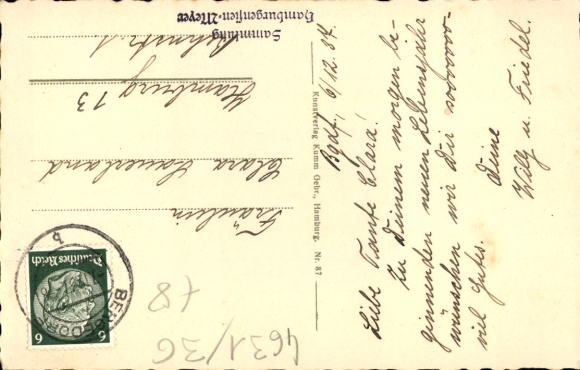 Bgdf., 6/12.37.
Liebe Tante Clara!
Zu Deinem morgen be-
ginnenden neuen Lebensjahr
wünschen wir Dir sooooooo-
viel Gutes.
Deine
Willy u. Friedel.
Kunstverlag Kumm Gebr., Hamburg. Nr. 87
Sammlung
Hamburgensien-Meyer
Fräulein
Clara Sauerland
Hamburg 13
Deutsches Reich
6 6
BERGEDORF
b
+8
4631/36